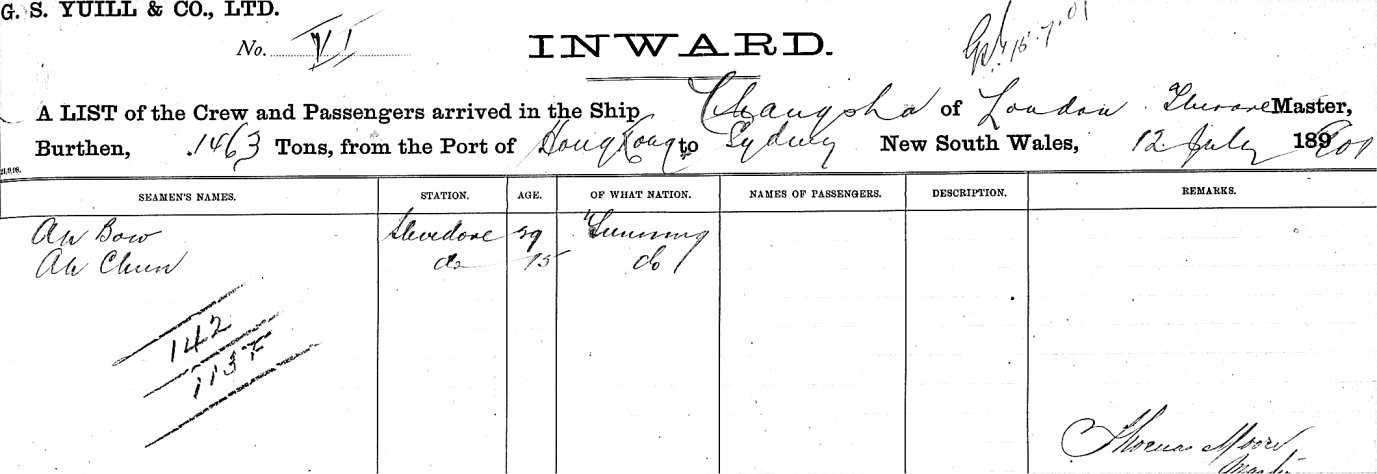 G. S. YUILL & CO., LTD.
No. VI
INWARD.
15.7.01
A LIST of the Crew and Passengers arrived in the Ship Changsha of London Moore Master,
Burthen, 1463 Tons, from the Port of Hong Kong to Sydney New South Wales, 12 July 1901
SEAMEN'S NAMES. STATION. AGE. OF WHAT NATION. NAMES OF PASSENGERS. DESCRIPTION. REMARKS.
Ah Bow Stevedore 29
Ah Chun do 15 do
142
113
Thomas Moore
Master